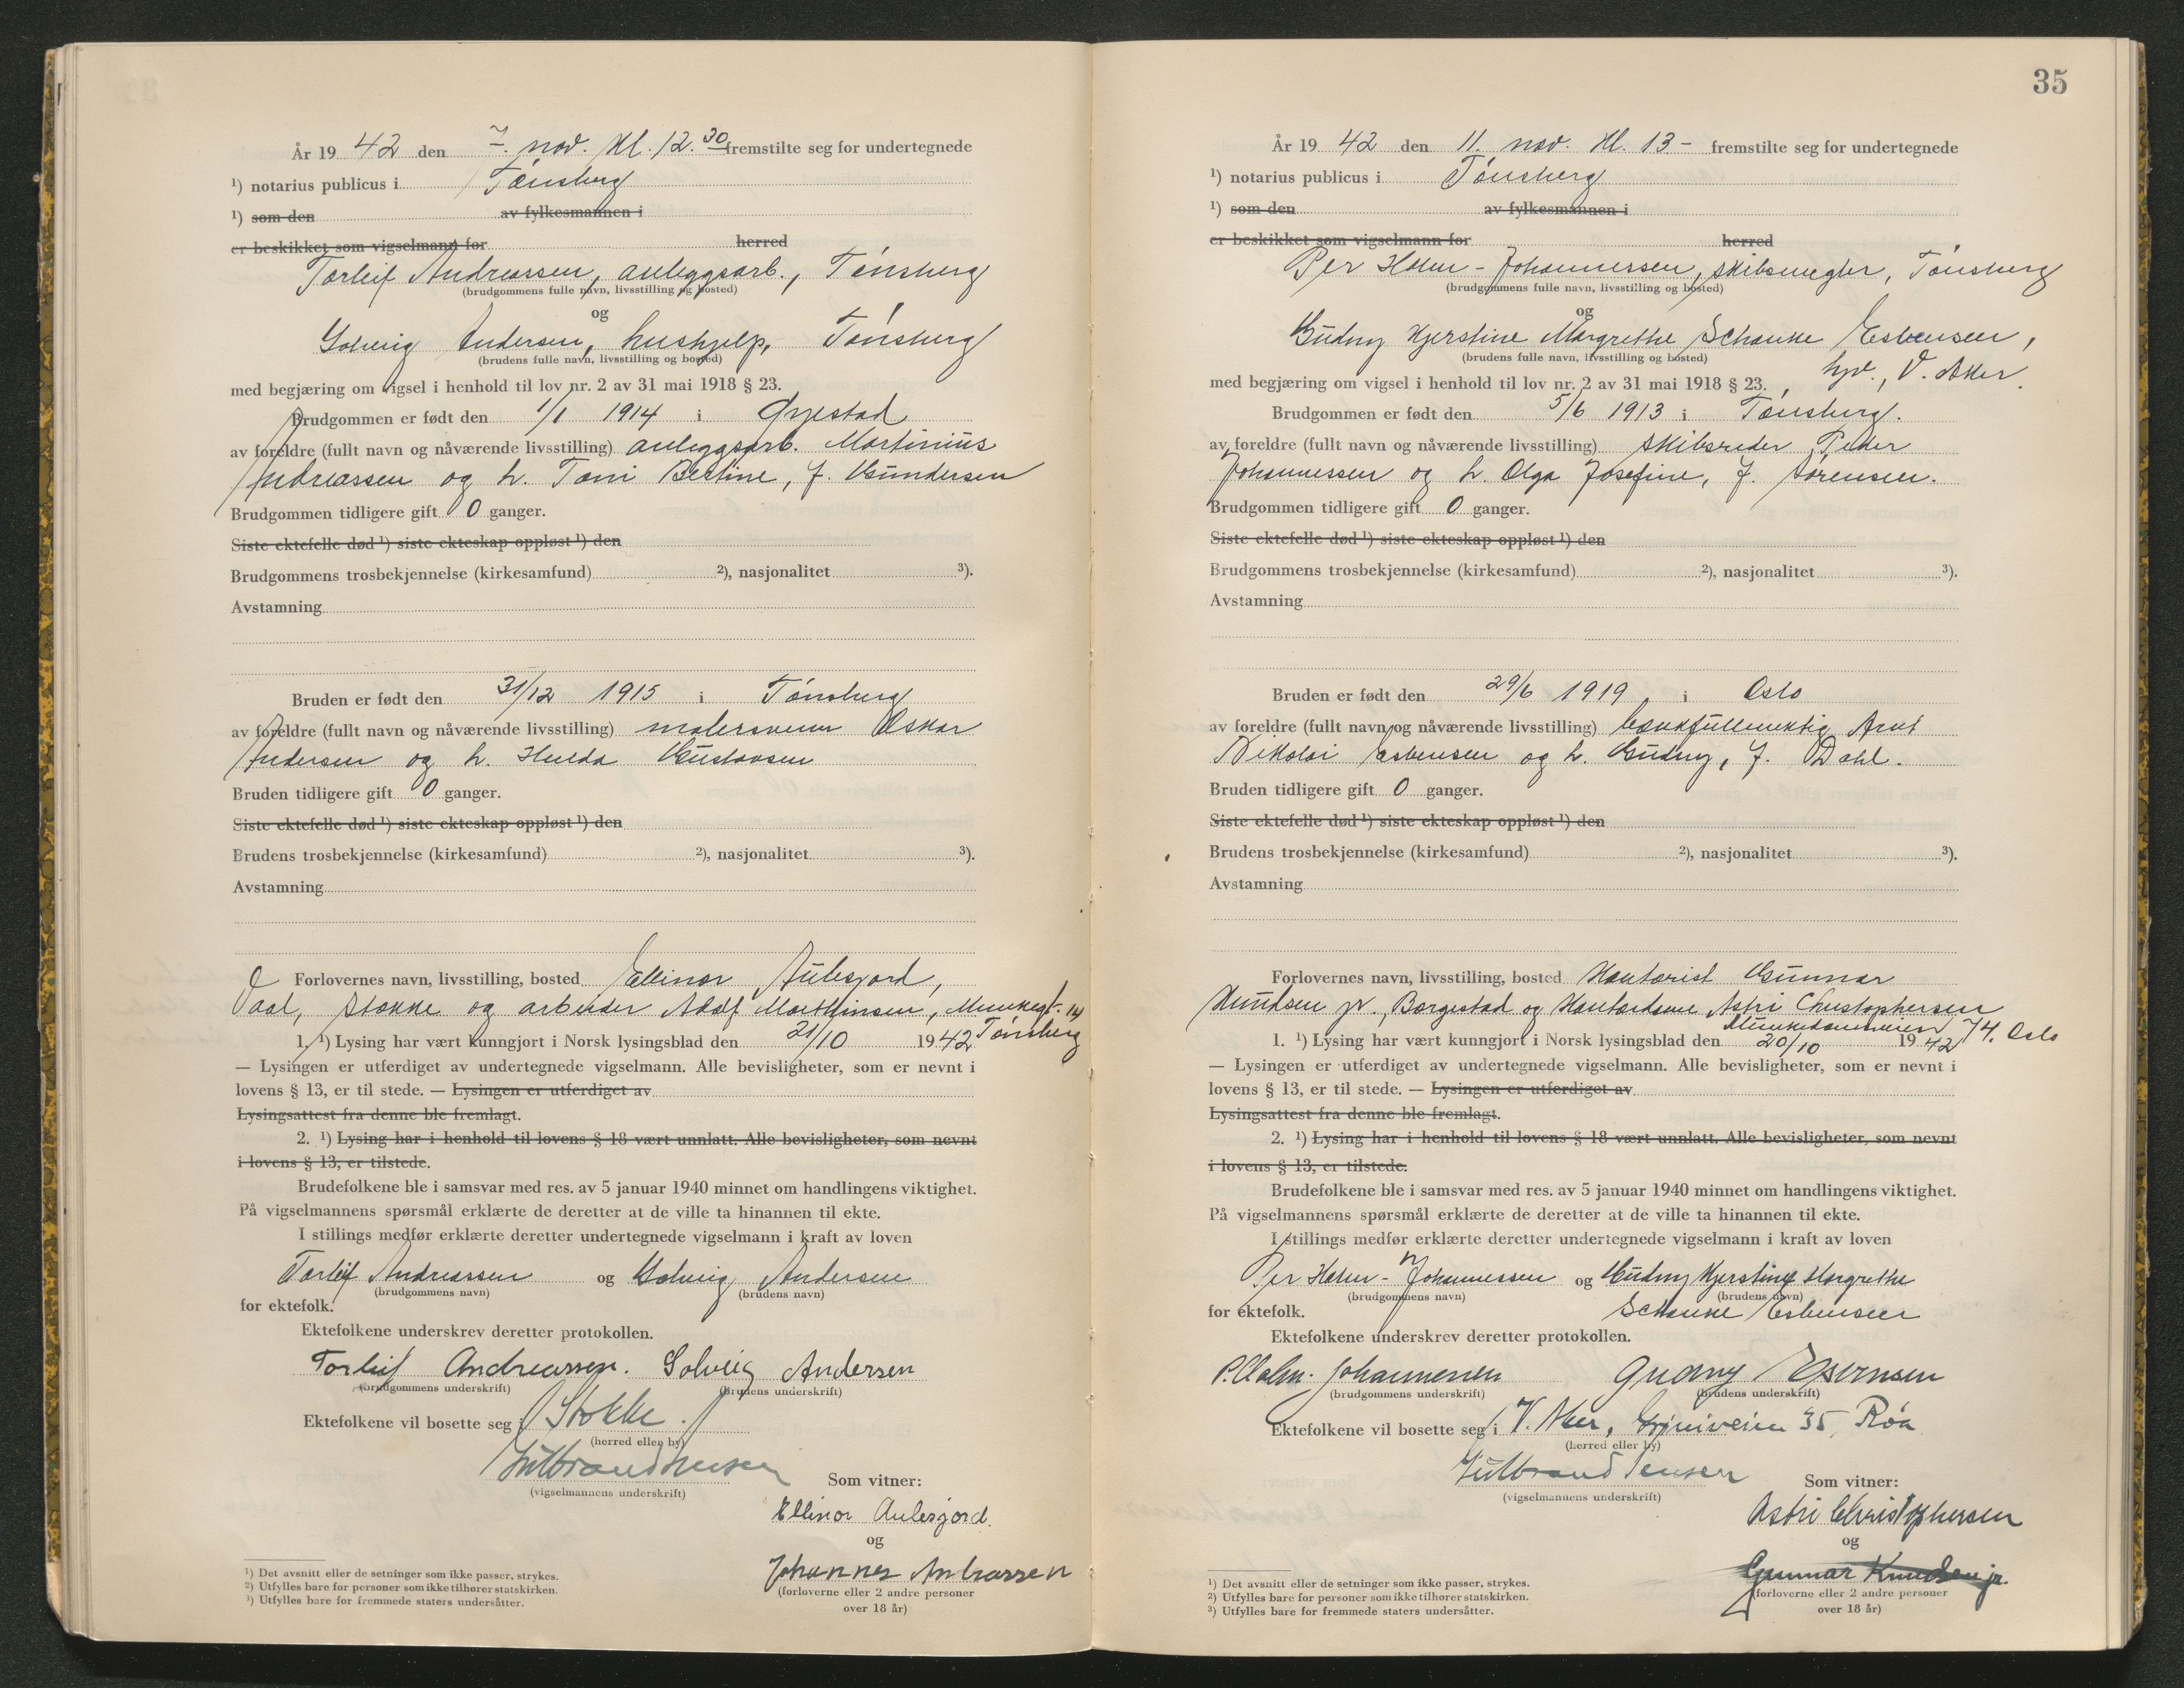 År 1942 den 7. nov. kl. 12.30 fremstilte seg for undertegnede
1) notarius publicus i Tønsberg
1) som den av fylkesmannen i
er beskikket som vigselmann for herred
Torleif Andreassen, anleggsarb., Tønsberg
(brudgommens fulle navn, livsstilling og bosted)
og
Solveig Andersen, hushjelp, Tønsberg
(brudens fulle navn, livsstilling og bosted)
med begjæring om vigsel i henhold til lov nr. 2 av 31 mai 1918 § 23.
Brudgommen er født den 1/1 1914 i Øyestad
av foreldre (fullt navn og nåværende livsstilling) anleggsarb. Martinius
Andreassen og h. Toni Bertine, f. Gundersen
Brudgommen tidligere gift 0 ganger.
Siste ektefelle død 1) siste ekteskap oppløst 1) den
Brudgommens trosbekjennelse (kirkesamfund) 2), nasjonalitet 3).
Avstamning
Bruden er født den 31/12 1915 i Tønsberg
av foreldre (fullt navn og nåværende livsstilling) malersvenn Oskar
Andersen og h. Hulda Gustavsen
Bruden tidligere gift 0 ganger.
Siste ektefelle død 1) siste ekteskap oppløst 1) den
Brudens trosbekjennelse (kirkesamfund) 2), nasjonalitet 3).
Avstamning
Forlovernes navn, livsstilling, bosted Ellinor Aulesjord,
Vaal, Stokke og arbeider Adolf Marthinsen, Munkegt. 14
Tønsberg
1. 1) Lysing har vært kunngjort i Norsk lysingsblad den 21/10 1942
— Lysingen er utferdiget av undertegnede vigselmann. Alle bevisligheter, som er nevnt i
lovens § 13, er til stede. — Lysingen er utferdiget av
Lysingsattest fra denne ble fremlagt.
2. 1) Lysing har i henhold til lovens § 18 vært unnlatt. Alle bevisligheter, som nevnt
i lovens § 13, er tilstede.
Brudefolkene ble i samsvar med res. av 5 januar 1940 minnet om handlingens viktighet.
På vigselmannens spørsmål erklærte de deretter at de ville ta hinannen til ekte.
I stillings medfør erklærte deretter undertegnede vigselmann i kraft av loven
Torleif Andreassen og Solveig Andersen
(brudgommens navn) (brudens navn)
for ektefolk.
Ektefolkene underskrev deretter protokollen.
Torleif Andreassen. Solveig Andersen
(brudgommens underskrift) (brudens underskrift)
Ektefolkene vil bosette seg i Stokke.
(herred eller by)
Gulbrand Jensen
(vigselmannens underskrift)
Som vitner:
Ellinor Aulesjord.
og
Johannes Andreassen
(forloverne eller 2 andre personer
over 18 år)
1) Det avsnitt eller de setninger som ikke passer, strykes.
2) Utfylles bare for personer som ikke tilhører statskirken.
3) Utfylles bare for fremmede staters undersåtter.
35
År 1942 den 11. nov. kl. 13 – fremstilte seg for undertegnede
1) notarius publicus i Tønsberg
1) som den av fylkesmannen i
er beskikket som vigselmann for herred
Per Holm-Johannessen, skibsmegler, Tønsberg
(brudgommens fulle navn, livsstilling og bosted)
og
Gudny Kjerstine Margrethe Schanke Esbensen,
(brudens fulle navn, livsstilling og bosted)
hjv., V. Aker.
med begjæring om vigsel i henhold til lov nr. 2 av 31 mai 1918 § 23.
Brudgommen er født den 5/6 1913 i Tønsberg.
av foreldre (fullt navn og nåværende livsstilling) skibsreder Peder
Johannessen og h. Olga Josefine, f. Sørensen.
Brudgommen tidligere gift 0 ganger.
Siste ektefelle død 1) siste ekteskap oppløst 1) den
Brudgommens trosbekjennelse (kirkesamfund) 2), nasjonalitet 3).
Avstamning
Bruden er født den 29/6 1919, i Oslo
av foreldre (fullt navn og nåværende livsstilling) bankfullmektig Arnt
Nikolai Esbensen og h. Gudny, f. Dahl.
Bruden tidligere gift 0 ganger.
Siste ektefelle død 1) siste ekteskap oppløst 1) den
Brudens trosbekjennelse (kirkesamfund) 2), nasjonalitet 3).
Avstamning
Forlovernes navn, livsstilling, bosted Kontorist Gunnar
Knudsen jr., Borgestad og Kontordame Astri Christophersen
Munkedamsveien 74. Oslo
1. 1) Lysing har vært kunngjort i Norsk lysingsblad den 20/10 1942
— Lysingen er utferdiget av undertegnede vigselmann. Alle bevisligheter, som er nevnt i
lovens § 13, er til stede. — Lysingen er utferdiget av
Lysingsattest fra denne ble fremlagt.
2. 1) Lysing har i henhold til lovens § 18 vært unnlatt. Alle bevisligheter, som nevnt
i lovens § 13, er tilstede.
Brudefolkene ble i samsvar med res. av 5 januar 1940 minnet om handlingens viktighet.
På vigselmannens spørsmål erklærte de deretter at de ville ta hinannen til ekte.
I stillings medfør erklærte deretter undertegnede vigselmann i kraft av loven
Per Holm-Johannessen og Gudny Kjerstine Margrethe
(brudgommens navn) (brudens navn)
for ektefolk. Schanke Esbensen
Ektefolkene underskrev deretter protokollen.
P. Holm-Johannessen Gudny Esbensen
(brudgommens underskrift) (brudens underskrift)
Ektefolkene vil bosette seg i V. Aker, Griniveien 35, Røa
(herred eller by)
Gulbrand Jensen
(vigselmannens underskrift)
Som vitner:
Astri Christophersen
og
Gunnar Knudsen jr.
(forloverne eller 2 andre personer
over 18 år)
1) Det avsnitt eller de setninger som ikke passer, strykes.
2) Utfylles bare for personer som ikke tilhører statskirken.
3) Utfylles bare for fremmede staters undersåtter.